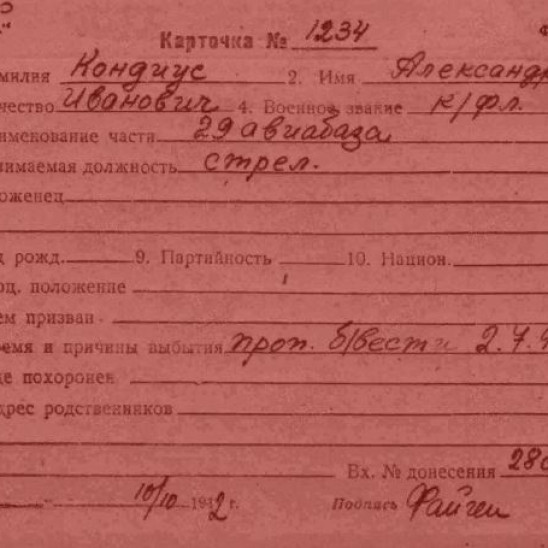 Карточка № 1234
милия Кондиус 2. Имя Александр
чество Иванович 4. Военное звание к/фл.
именование части 29 авиабаза
нимаемая должность стрел.
оженец
д рожд. 9. Партийность 10. Национ.
оц. положение
ем призван
ремя и причины выбытия проп. б/вести 2.7.
де похоронен
дрес родственников
Вх. № донесения 280
10/10 1942 г. Подпись